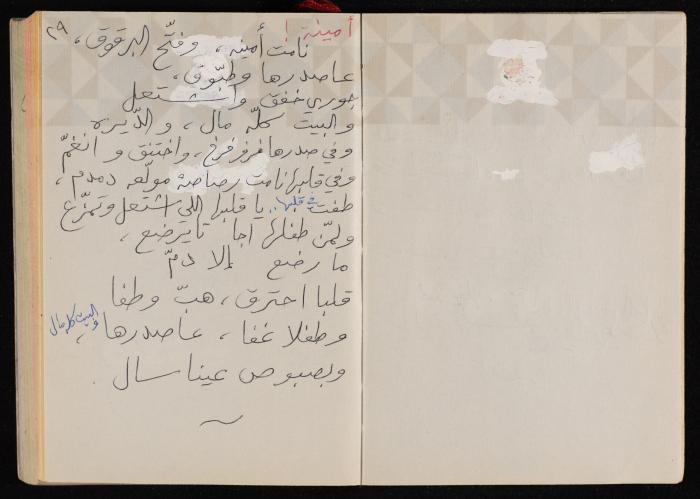 ٢٩
أمينة!
نامت أمينه، وفتّح البرقوق،
عاصدرها وطبّوق،
جوري خفق وانشتعل
والبيت كلّه مال، والدّيره
وفي صدرها فرفرفرخ، واختنق وانغمّ
وفي قلبها نامت رصاصة مولّعه دمدم،
طفت في قلبها.. يا قلبها اللي اشتعل وتمزّع
ولمّن طفلها اجا تايرضع،
ما رضع إلا دمّ
قلبا احترق، هبّ وطفا
وطفلا غفا، عاصدرها،
والبيت كله مال
وبصبوص عينا سال.